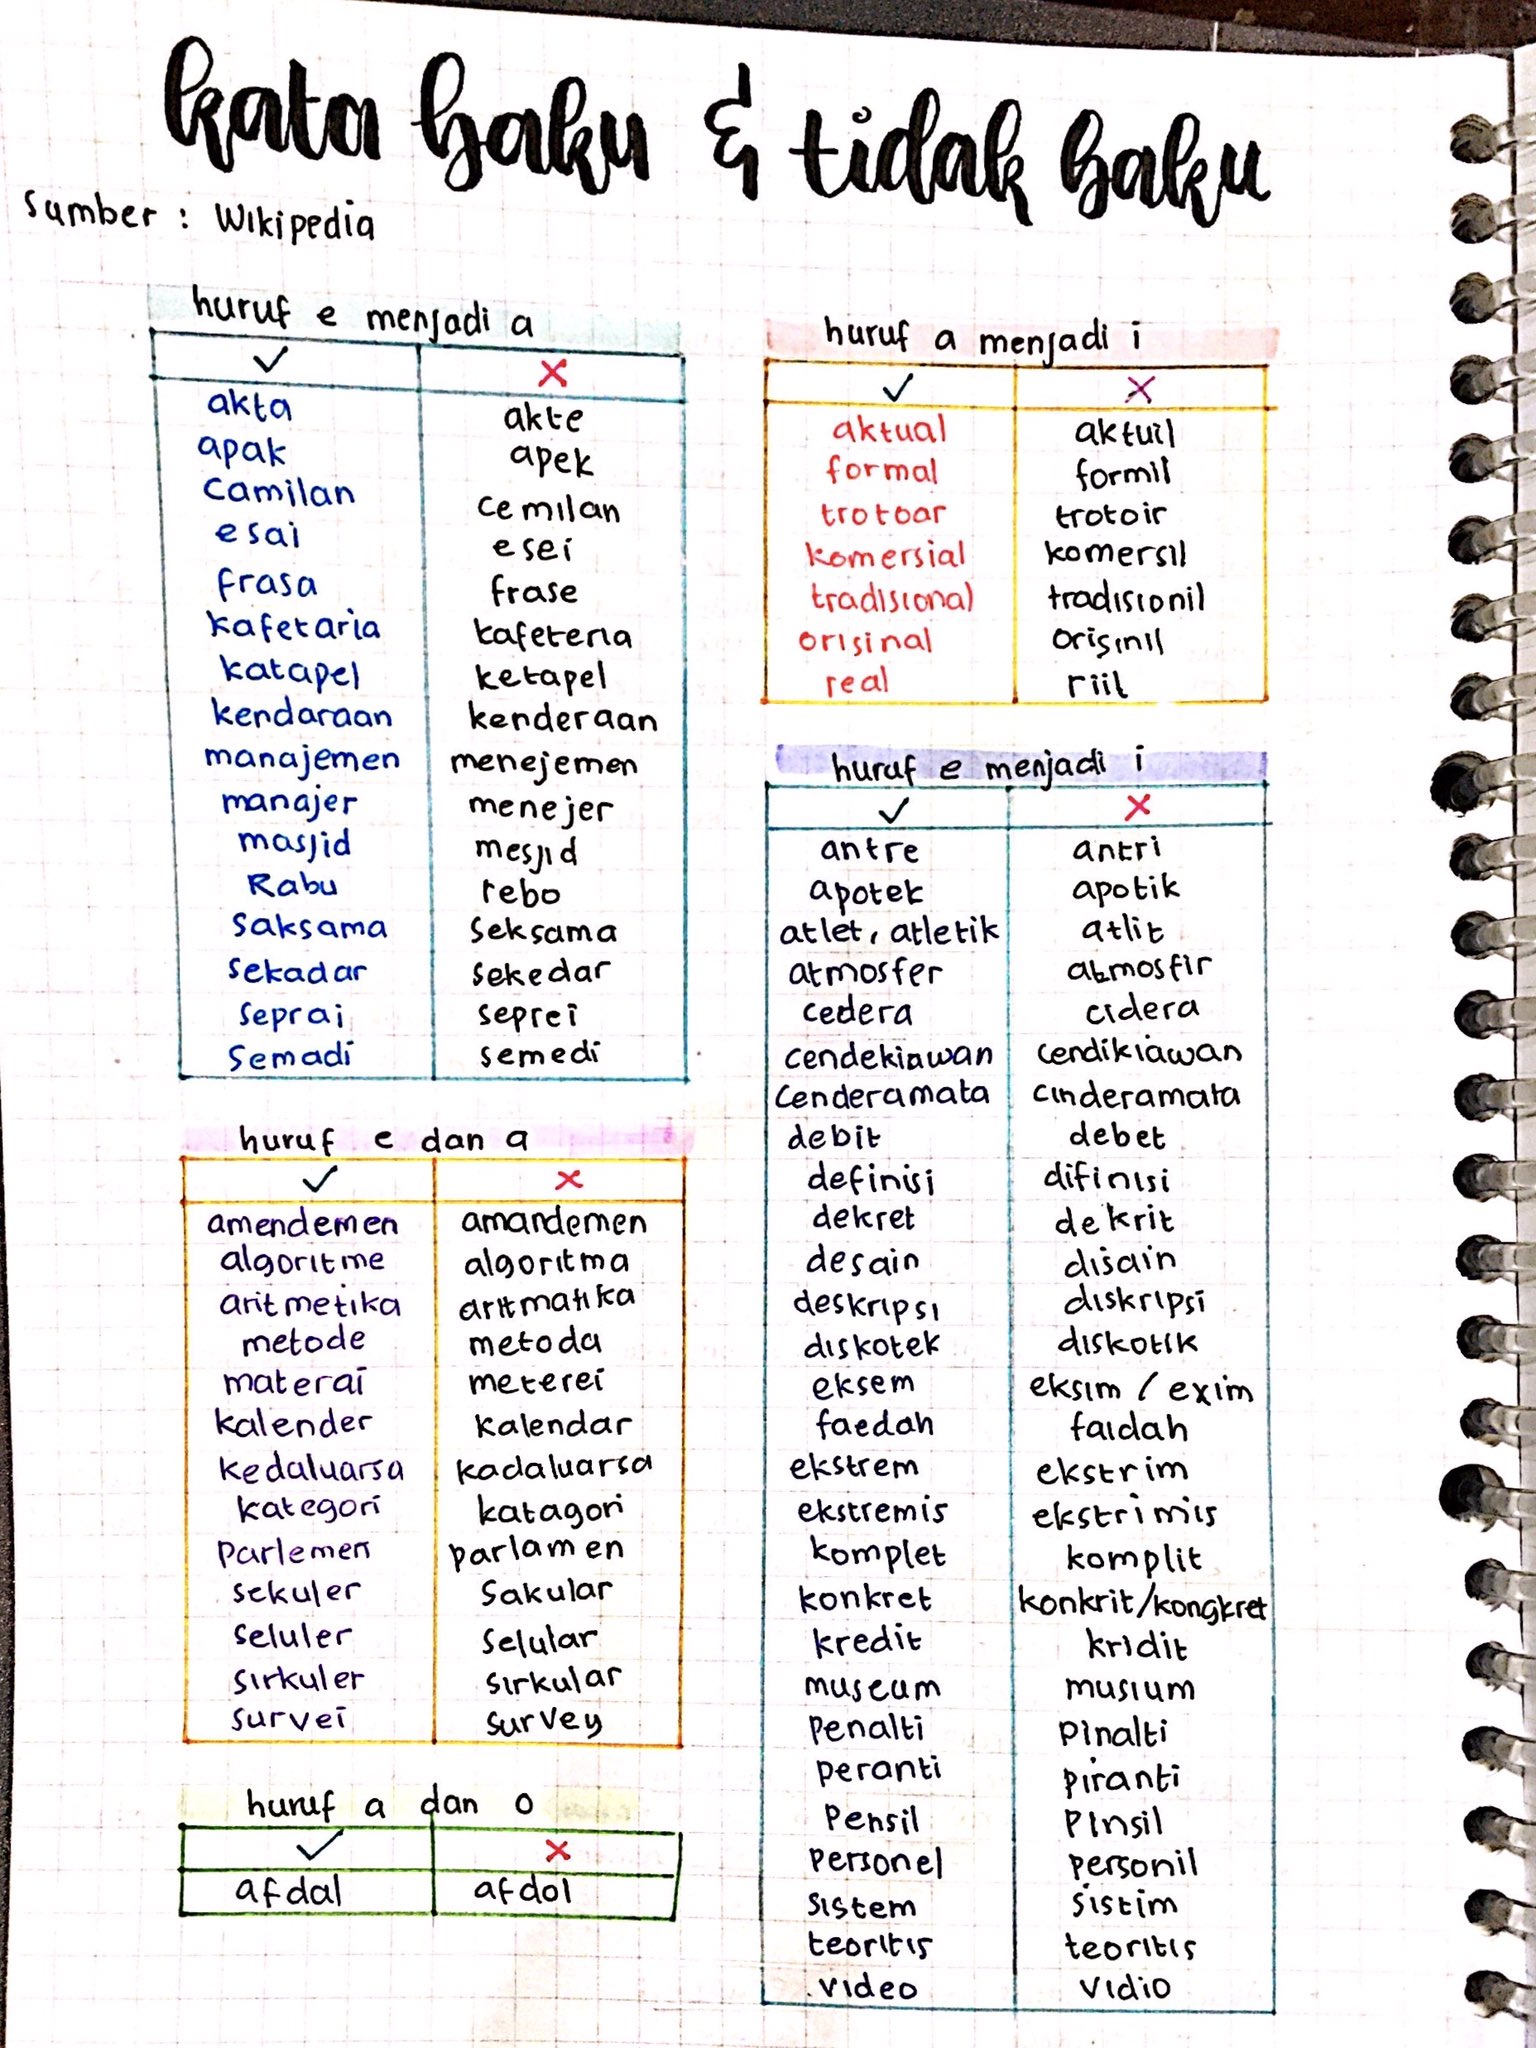 kata baku & tidak baku
sumber : Wikipedia
huruf e menjadi a
✓ ✗
akta akte
apak apek
camilan cemilan
esai esei
frasa frase
kafetaria kafeteria
katapel ketapel
kendaraan kenderaan
manajemen menejemen
manajer menejer
masjid mesjid
Rabu rebo
saksama seksama
sekadar sekedar
seprai seprei
semadi semedi
huruf e dan a
✓ ✗
amendemen amandemen
algoritme algoritma
aritmetika aritmatika
metode metoda
materai meterei
kalender kalendar
kedaluarsa kadaluarsa
kategori katagori
parlemen parlamen
sekuler sakular
seluler selular
sirkuler sirkular
survei survey
huruf a dan o
✓ ✗
afdal afdol
huruf a menjadi i
✓ ✗
aktual aktuil
formal formil
trotoar trotoir
komersial komersil
tradisional tradisionil
orisinal orisinil
real riil
huruf e menjadi i
✓ ✗
antre antri
apotek apotik
atlet, atletik atlit
atmosfer atmosfir
cedera cidera
cendekiawan cendikiawan
cenderamata cinderamata
debit debet
definisi difinisi
dekret dekrit
desain disain
deskripsi diskripsi
diskotek diskotik
eksem eksim / exim
faedah faidah
ekstrem ekstrim
ekstremis ekstrimis
komplet komplit
konkret konkrit/kongkret
kredit kridit
museum musium
penalti pinalti
peranti piranti
pensil pinsil
personel personil
sistem sistim
teoritis teoritis
video vidio